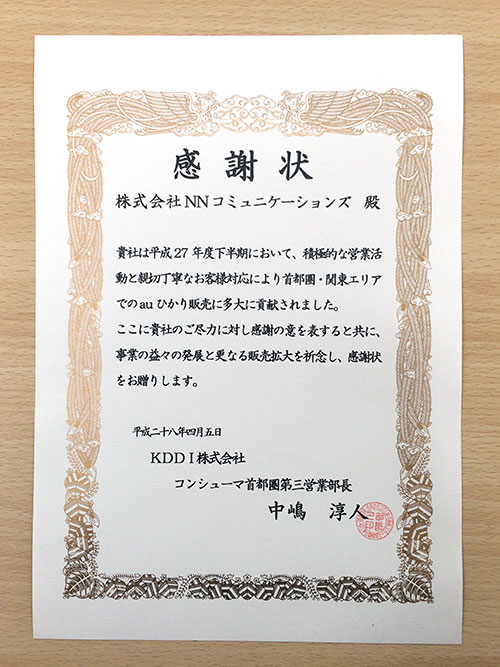 感謝状
株式会社NNコミュニケーションズ 殿
貴社は平成27年度下半期において、積極的な営業活
動と親切丁寧なお客様対応により首都圏・関東エリア
でのauひかり販売に多大に貢献されました。
ここに貴社のご尽力に対し感謝の意を表すると共に、
事業の益々の発展と更なる販売拡大を祈念し、感謝状
をお贈りします。
平成二十八年四月五日
KDDI株式会社
コンシューマ首都圏第三営業部長
中嶋 淳人